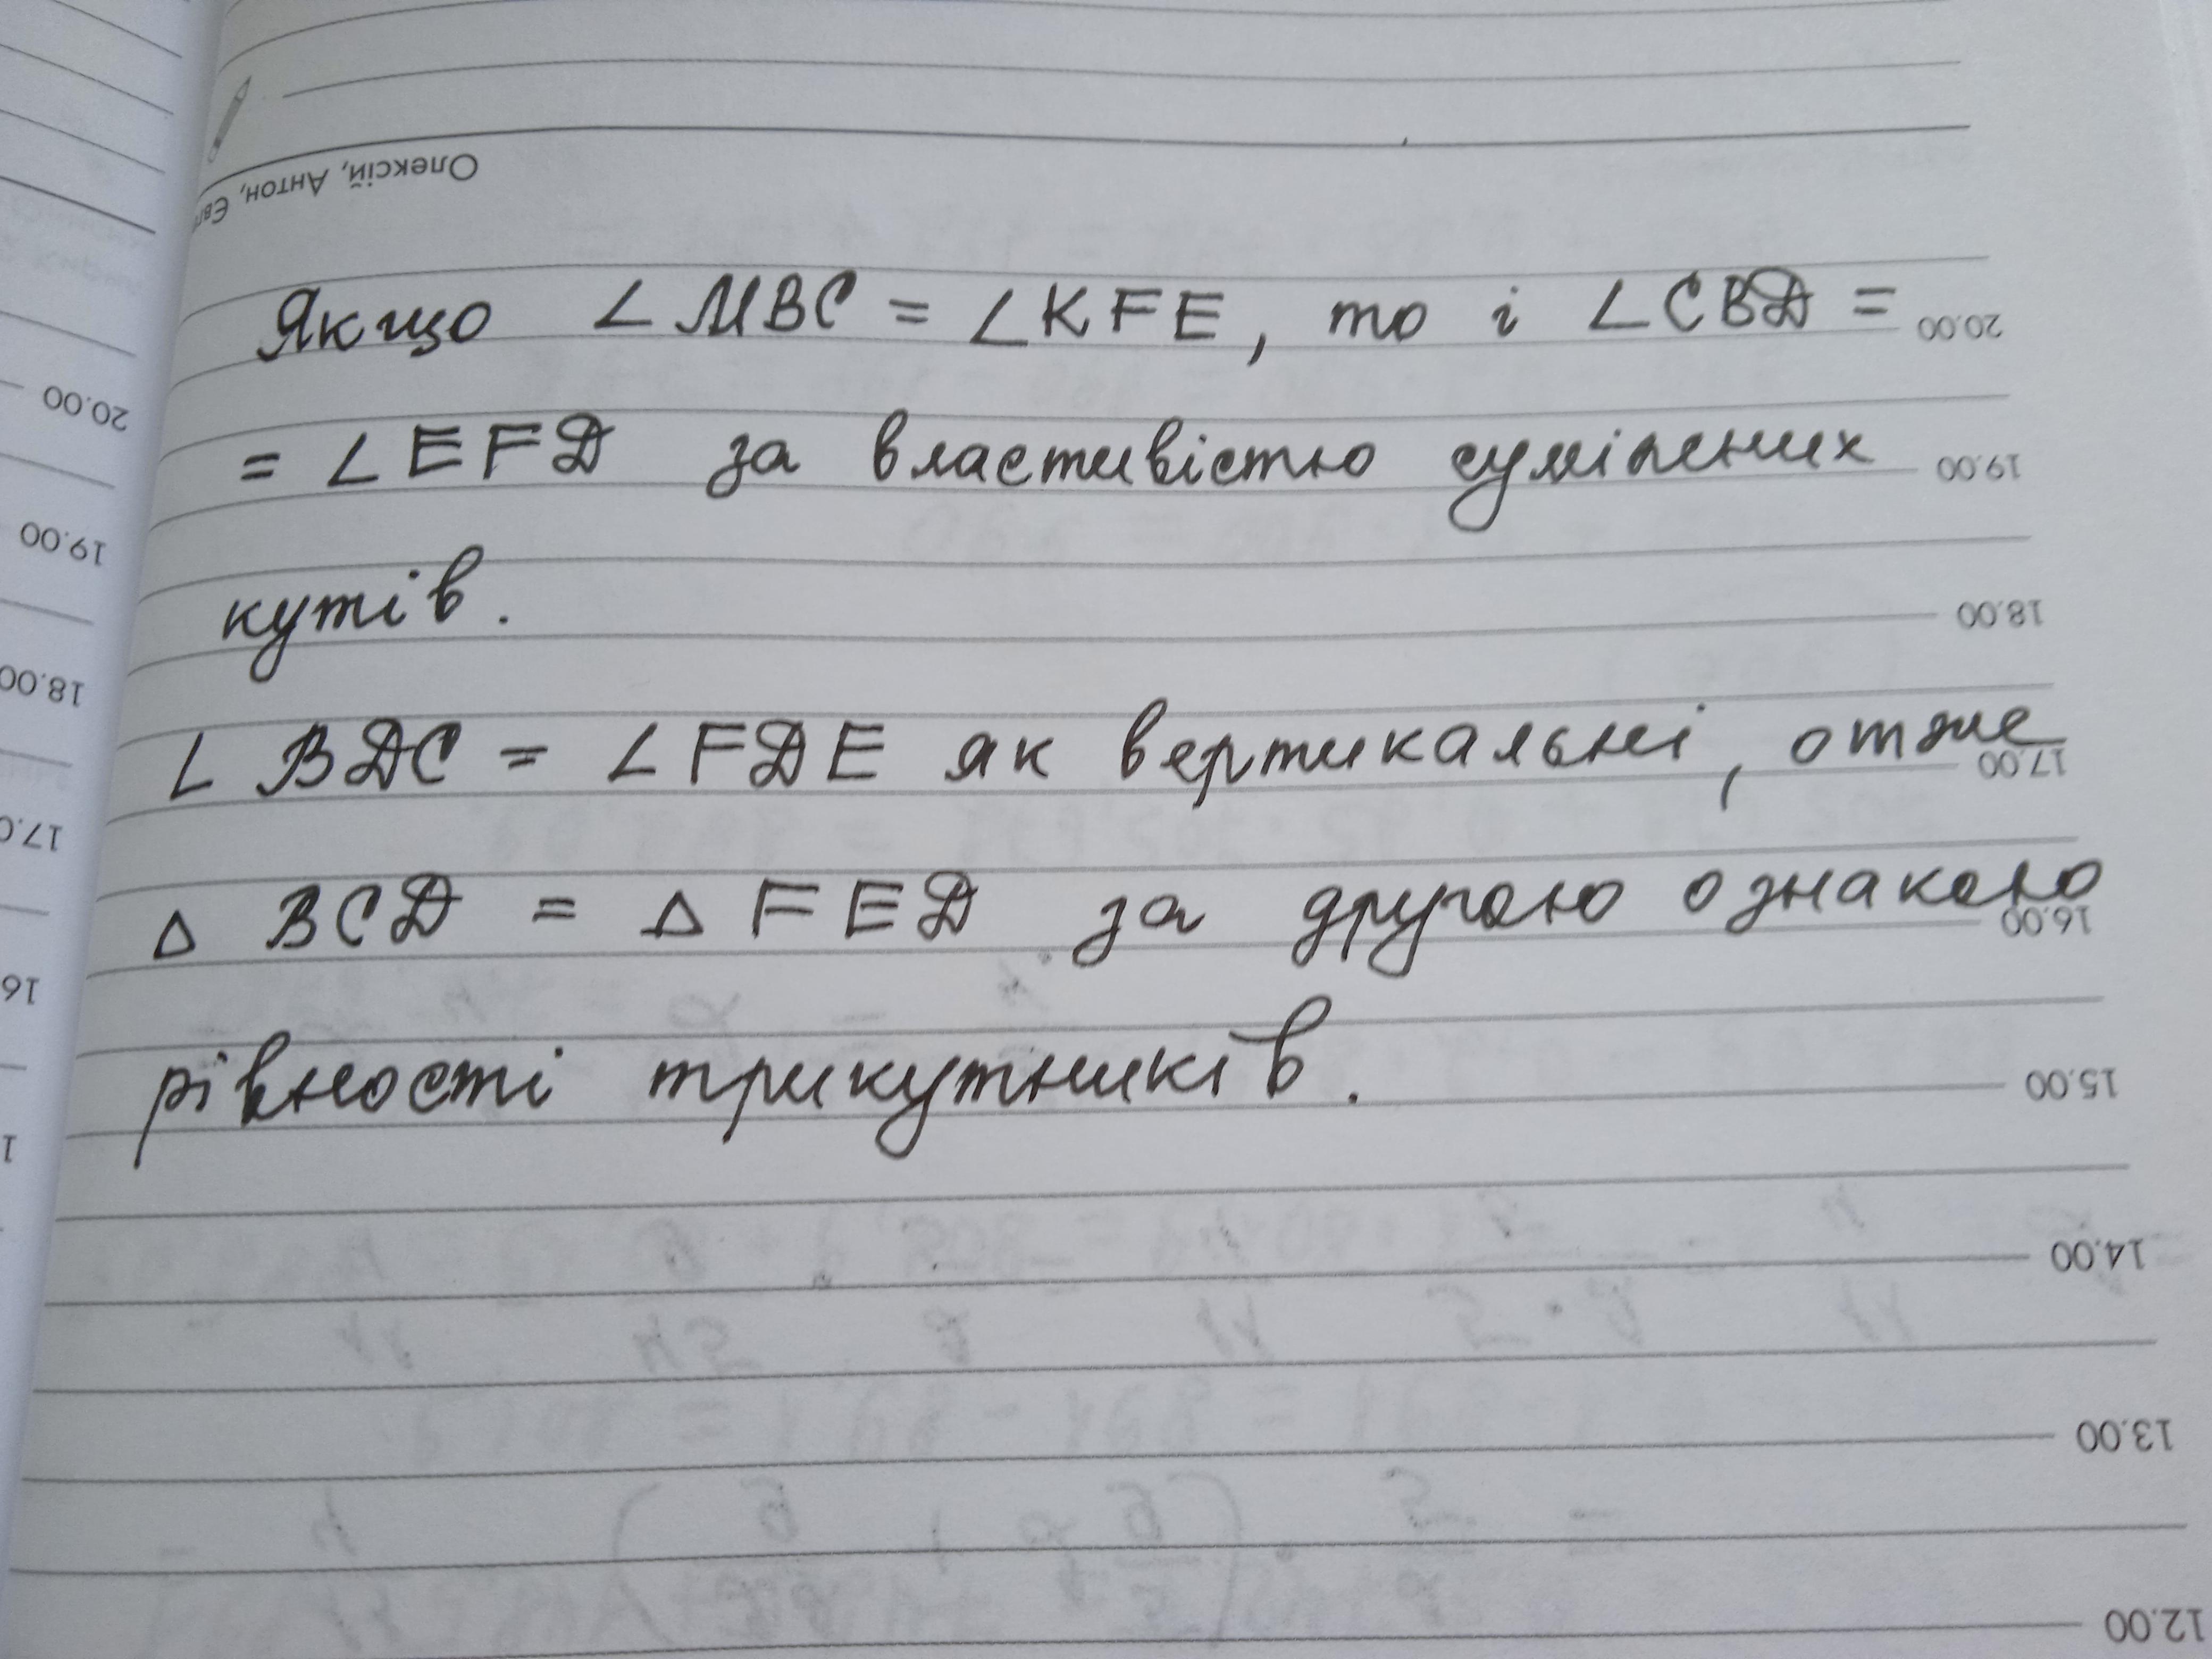 Олексій, Антон, Євг
Якщо ∠MBC = ∠KFE, то і ∠CBD =
20.00
= ∠EFD за властивістю суміжних
19.00
кутів.
18.00
∠BDC = ∠FDE як вертикальні, отже
17.00
△BCD = △FED за другою ознакою
16.00
рівності трикутників.
15.00
14.00
13.00
12.00
20.00
19.00
18.00
17.0
16
1